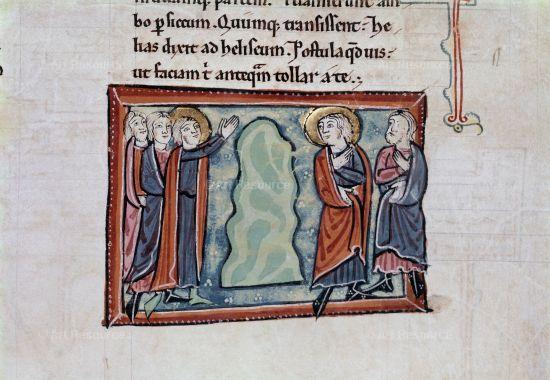 partem. Transierunt am
bo p siccum. Quumq; transissent: he
lias dixit ad heliseum. Postula qd vis
ut faciam t anteqm tollar a te.
Art Resource